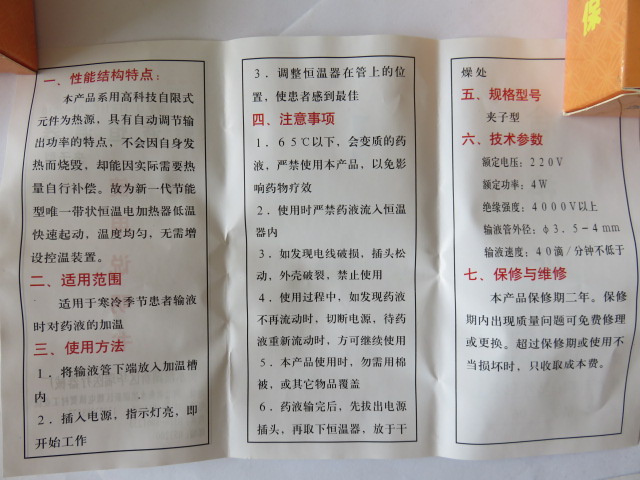 一、性能结构特点：
本产品系用高科技自限式
元件为热源，具有自动调节输
出功率的特点，不会因自身发
热而烧毁，却能因实际需要热
量自行补偿。故为新一代节能
型唯一带状恒温电加热器低温
快速起动，温度均匀，无需增
设控温装置。
二、适用范围
适用于寒冷季节患者输液
时对药液的加温
三、使用方法
1．将输液管下端放入加温槽
内
2．插入电源，指示灯亮，即
开始工作
3．调整恒温器在管上的位
置，使患者感到最佳
四、注意事项
1．65℃以下，会变质的药
液，严禁使用本产品，以免影
响药物疗效
2．使用时严禁药液流入恒温
器内
3．如发现电线破损，插头松
动，外壳破裂，禁止使用
4．使用过程中，如发现药液
不再流动时，切断电源，待药
液重新流动时，方可继续使用
5．本产品使用时，勿需用棉
被，或其它物品覆盖
6．药液输完后，先拔出电源
插头，再取下恒温器，放于干
燥处
五、规格型号
夹子型
六、技术参数
额定电压：220V
额定功率：4W
绝缘强度：4000V以上
输液管外径：φ3.5-4mm
输液速度：40滴/分钟不低于
七、保修与维修
本产品保修期二年。保修
期内出现质量问题可免费修理
或更换。超过保修期或使用不
当损坏时，只收取成本费。
保